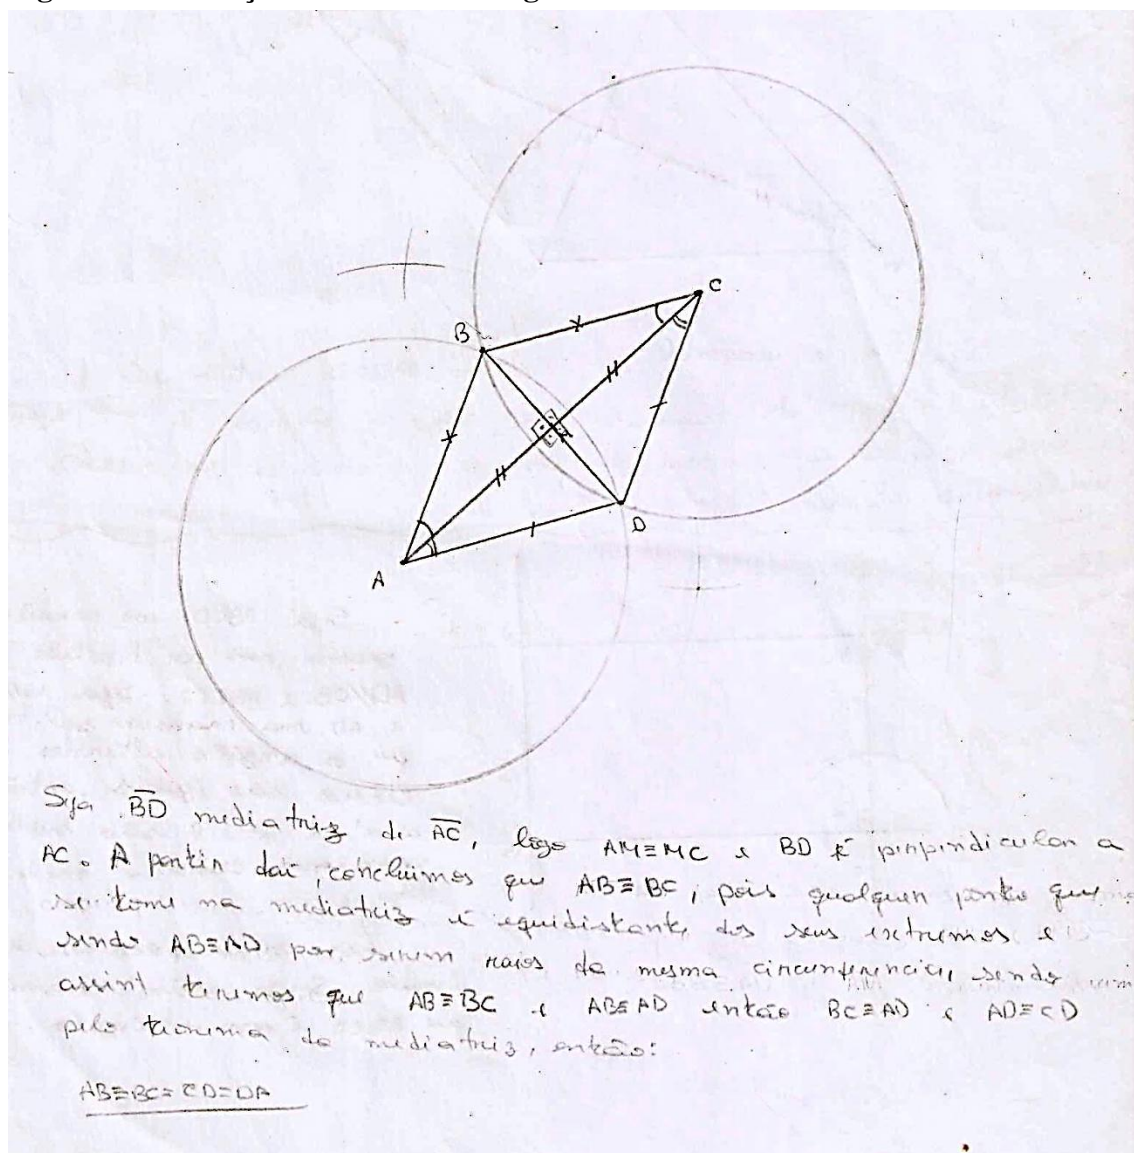 C
B
A
D
Seja BD mediatriz de AC, logo AM≡MC e BD é perpendicular a
AC. A partir daí, concluimos que AB≡BC, pois qualquer ponto que
se tome na mediatriz é equidistante dos seus extremos e
sendo AB≡AD por serem raios da mesma circunferência, sendo
assim teremos que AB≡BC e AB≡AD então BC≡AD e AD≡CD
pelo teorema da mediatriz, então:
AB≡BC=CD=DA